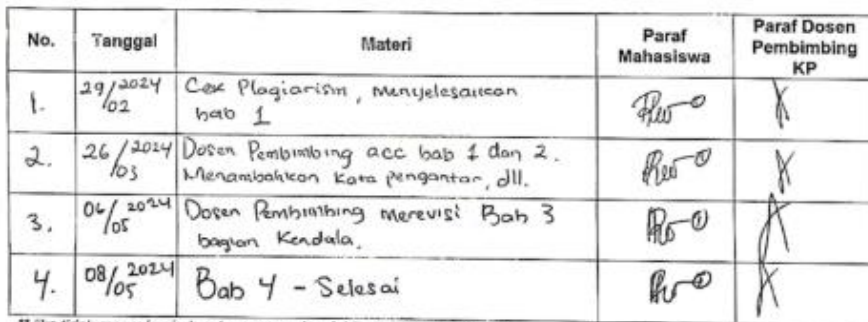 No. Tanggal Materi Paraf Mahasiswa Paraf Dosen Pembimbing KP
1. 29/02 2024 Cek Plagiarism, Menyelesaikan
bab 1
2. 26/03 2024 Dosen Pembimbing acc bab 1 dan 2.
Menambahkan Kata pengantar, dll.
3. 06/05 2024 Dosen Pembimbing Merevisi Bab 3
bagian Kendala.
4. 08/05 2024 Bab 4 - Selesai